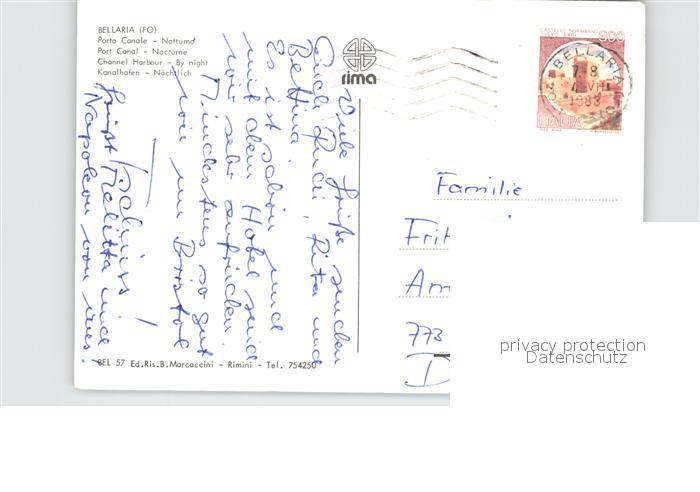 BELLARIA (FO)
Porto Canale - Notturno
Port Canal - Nocturne
Channel Harbour - By night
Kanalhafen - Nächtlich
rima
CASTELLO NORMANNO
300
ITALIA
BELLARIA
7-8
1983
Viele Grüße senden
Euch Rudi, Rita und
Bettina.
Es ist schön und
mit dem Hotel sind
wir sehr zufrieden.
Mindestens so gut
wie im Bristol
Tschüss!
Grüßt Melitta und
Napoleon von uns!
Familie
Frit
Am
773
D
BEL 57 Ed.Ris.B.Marcaccini - Rimini - Tel. 754250
privacy protection
Datenschutz